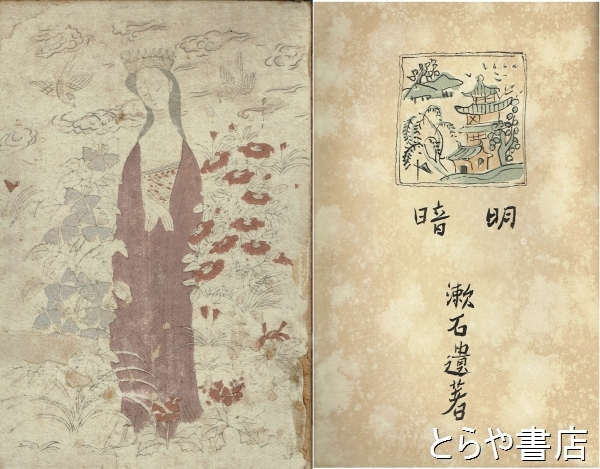 明暗
漱石遺著
とらや書店